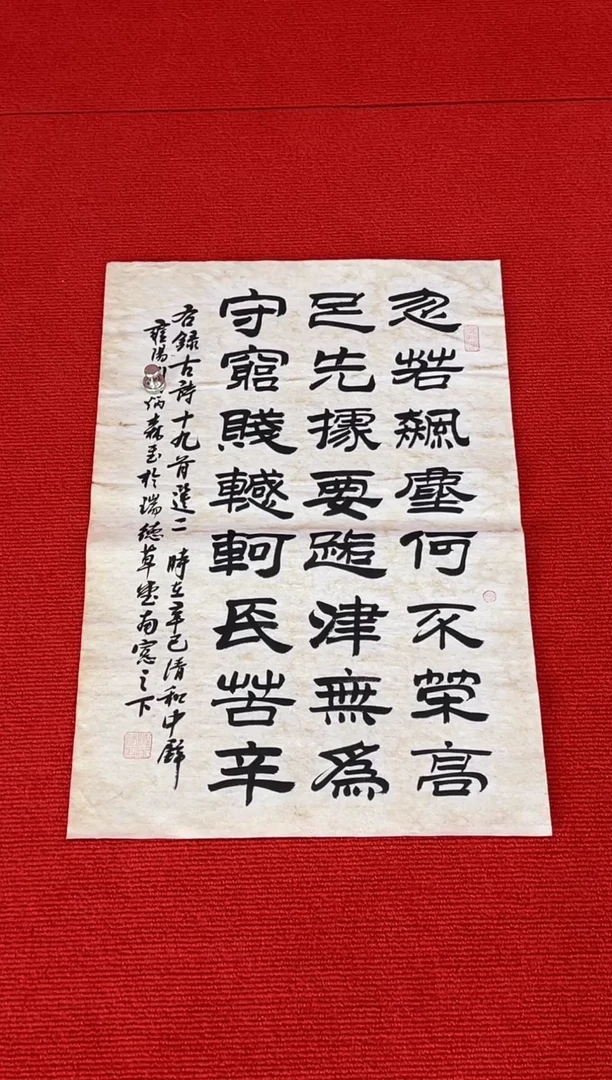 忽若飆塵何不策高
足先據要路津無為
守窮賤轗軻長苦辛
右錄古詩十九首選二 時在辛巳清和中澣
雍陽 炳森書於瑞德草堂南窓之下